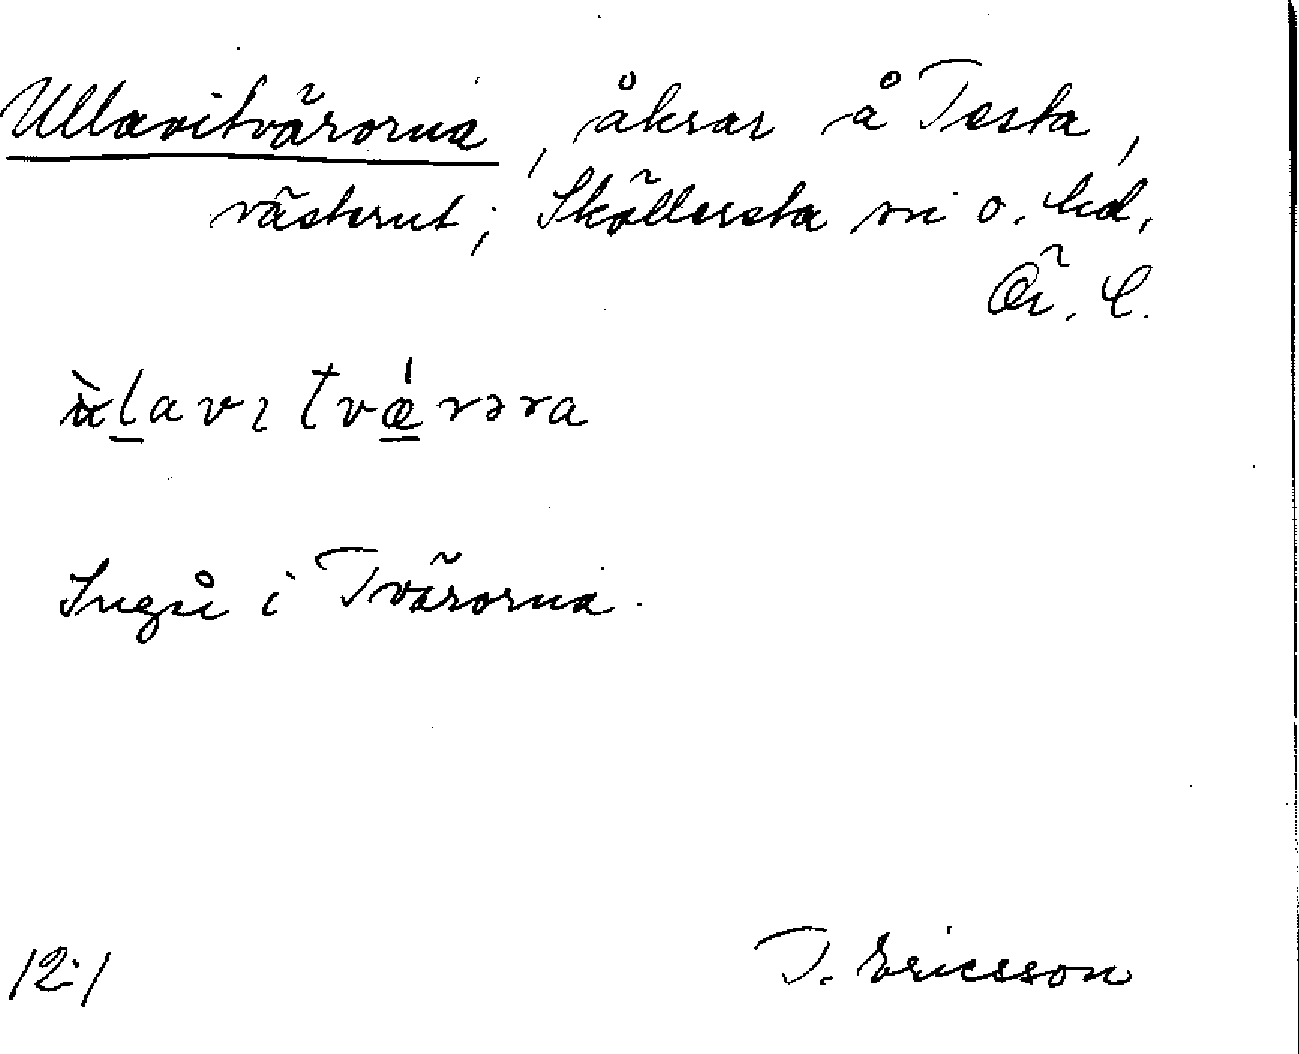 Ullavitvärorna, åkrar å Testa,
västerut; Sköllersta sn o. hd,
Ör. l.
ùlavɩ tvǽrəra
Ingå i Tvärorna.
12:1 T. Ericsson